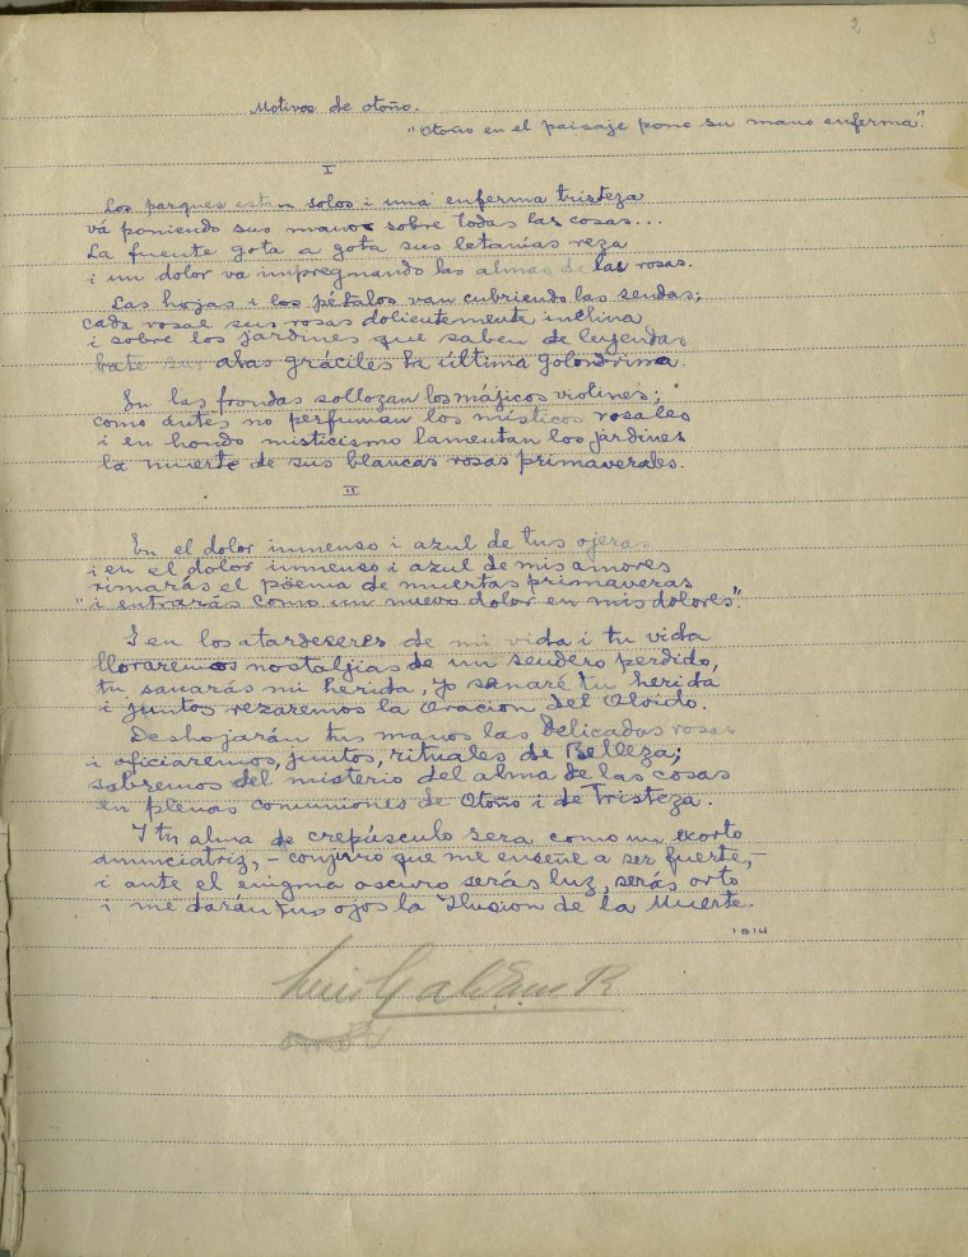 2 3
Motivos de otoño.
"Otoño en el paisaje pone su mano enferma".
I
Los parques estan solos i una enferma tristeza
vá poniendo sus manos sobre todas las cosas...
La fuente gota a gota sus letanías reza
i un dolor va impregnando las almas de las rosas.
Las hojas i los pétalos van cubriendo las sendas;
cada rosal sus rosas dolientemente inclina
i sobre los jardines que saben de leyendas
bate sus alas gráciles la última golondrina.
En las frondas sollozan los májicos violines;
como ántes no perfuman los místicos rosales
i en hondo misticismo lamentan los jardines
la muerte de sus blancas rosas primaverales.
II
En el dolor inmenso i azul de tus ojeras
i en el dolor inmenso i azul de mis amores
rimarás el pöema de muertas primaveras
"i entrarás como un nuevo dolor en mis dolores".
I en los atardeseres de mi vida i tu vida
lloraremos nostaljias de un sendero perdido,
tu sanarás mi herida, yo sanaré tu herida
i juntos rezaremos la Oracion del Olvido.
Deshojarán tus manos las delicadas rosas
i oficiaremos, juntos, rituales de Belleza;
sabremos del misterio del alma de las cosas
en plenas comuniones de Otoño i de Tristeza.
I tu alma de crepúsculo sera como un exorto
anunciatriz, - conjuro que me enseñe a ser fuerte,-
i ante el enigma oscuro serás luz, serás orto
i me darán tus ojos la Ilusion de la Muerte.
1914
Luis R.